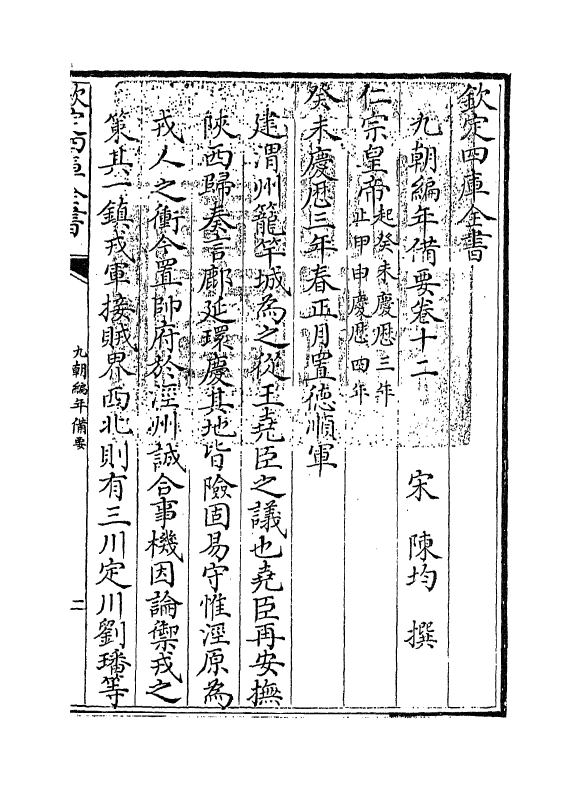 欽定四庫全書
九朝編年備要卷十二
宋 陳均 撰
仁宗皇帝起癸未慶厯三年
止甲申慶厯四年
癸未慶厯三年春正月置德順軍
建渭州籠竿城為之從王堯臣之議也堯臣再安撫
陜西歸奏言鄜延環慶其地皆險固易守惟涇原為
戎人之衝今置帥府於涇州誠合事機因論禦戎之
策其一鎮戎軍接賊界西北則有三川定川劉璠等
欽定四庫全書
九朝編年備要
二